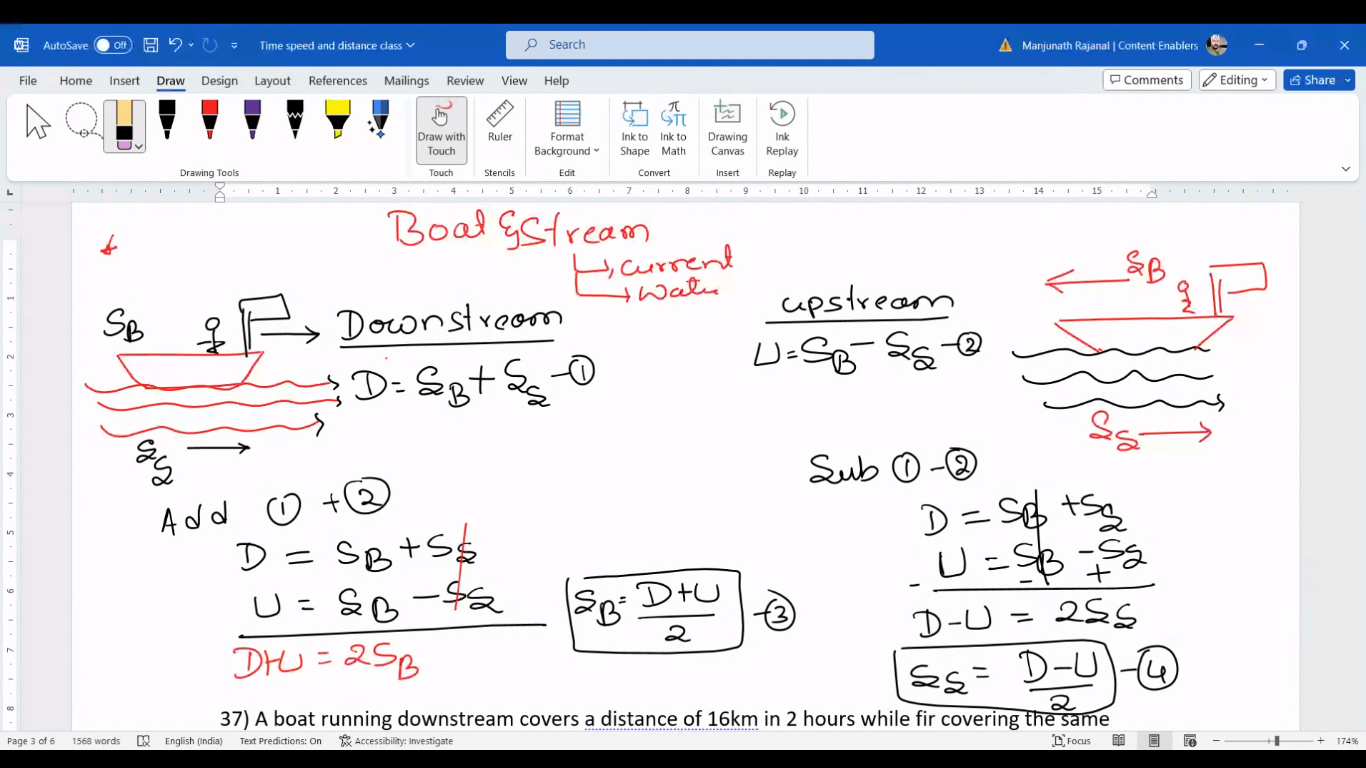 AutoSave Off Time speed and distance class Search Manjunath Rajanal | Content Enablers
File Home Insert Draw Design Layout References Mailings Review View Help Comments Editing Share
Draw with Touch Ruler Format Background Ink to Shape Ink to Math Drawing Canvas Ink Replay
Drawing Tools Touch Stencils Edit Convert Insert Replay
2 1 1 2 3 4 5 6 7 8 9 10 11 12 13 14 15
Boat & Stream
current
Water
Downstream
S_B
D = S_B + S_S - ①
S_S
upstream
U = S_B - S_S - ②
S_B
S_S
Add ① + ②
D = S_B + S_S
U = S_B - S_S
D+U = 2S_B
S_B = D+U/2 - ③
Sub ① - ②
D = S_B + S_S
- U = S_B - S_S
- +
D-U = 2S_S
S_S = D-U/2 - ④
37) A boat running downstream covers a distance of 16km in 2 hours while fir covering the same
Page 3 of 6 1568 words English (India) Text Predictions: On Accessibility: Investigate Focus 174%